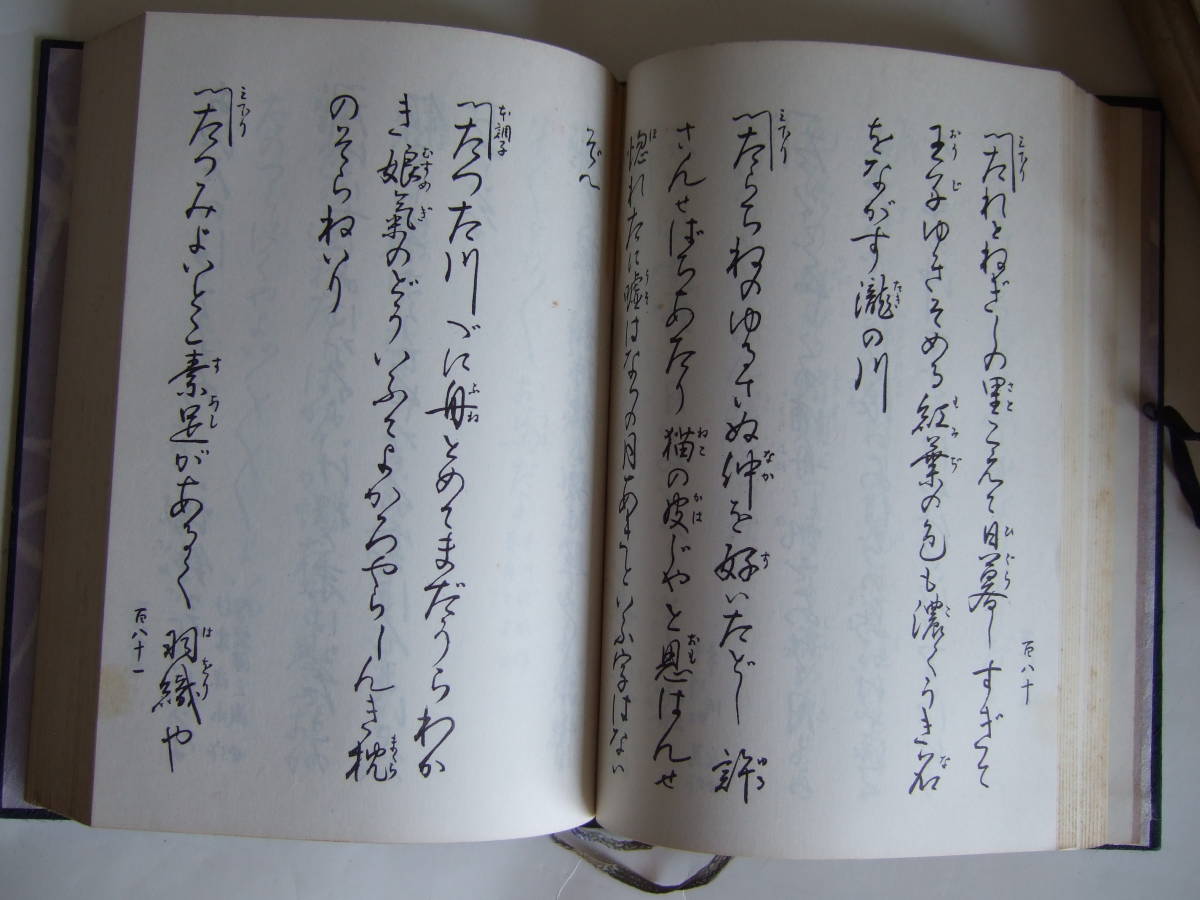 三下り
〽たれとねぎしの里こえて日暮しすぎて
王子ゆきそめる紅葉の色も濃くうき名
をながす瀧の川
三下り
〽たらちねのゆるさぬ仲を好いたどし 許
さんせばちあたり 猫の皮ぢやと思はんせ
惚れたに嘘はなつの月あきといふ字はない
ぞへ
百八十
本調子
〽たつた川べに舟とめてまだうらわか
き娘氣のどういふてよかろやらしんき枕
のそらねいり
三下り
〽たつみよいとこ素足があるく 羽織や
百八十一